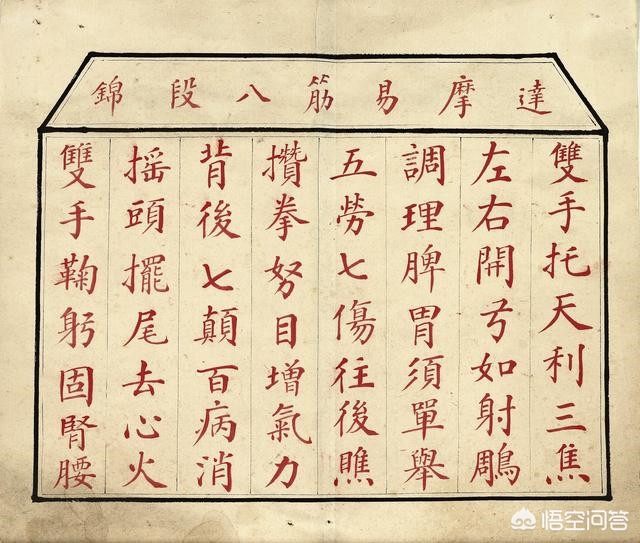 達摩易筋八段錦
雙手托天利三焦
左右開弓如射鵰
調理脾胃須單舉
五勞七傷往後瞧
攢拳努目增氣力
背後七顛百病消
搖頭擺尾去心火
雙手鞠躬固腎腰
悟空问答